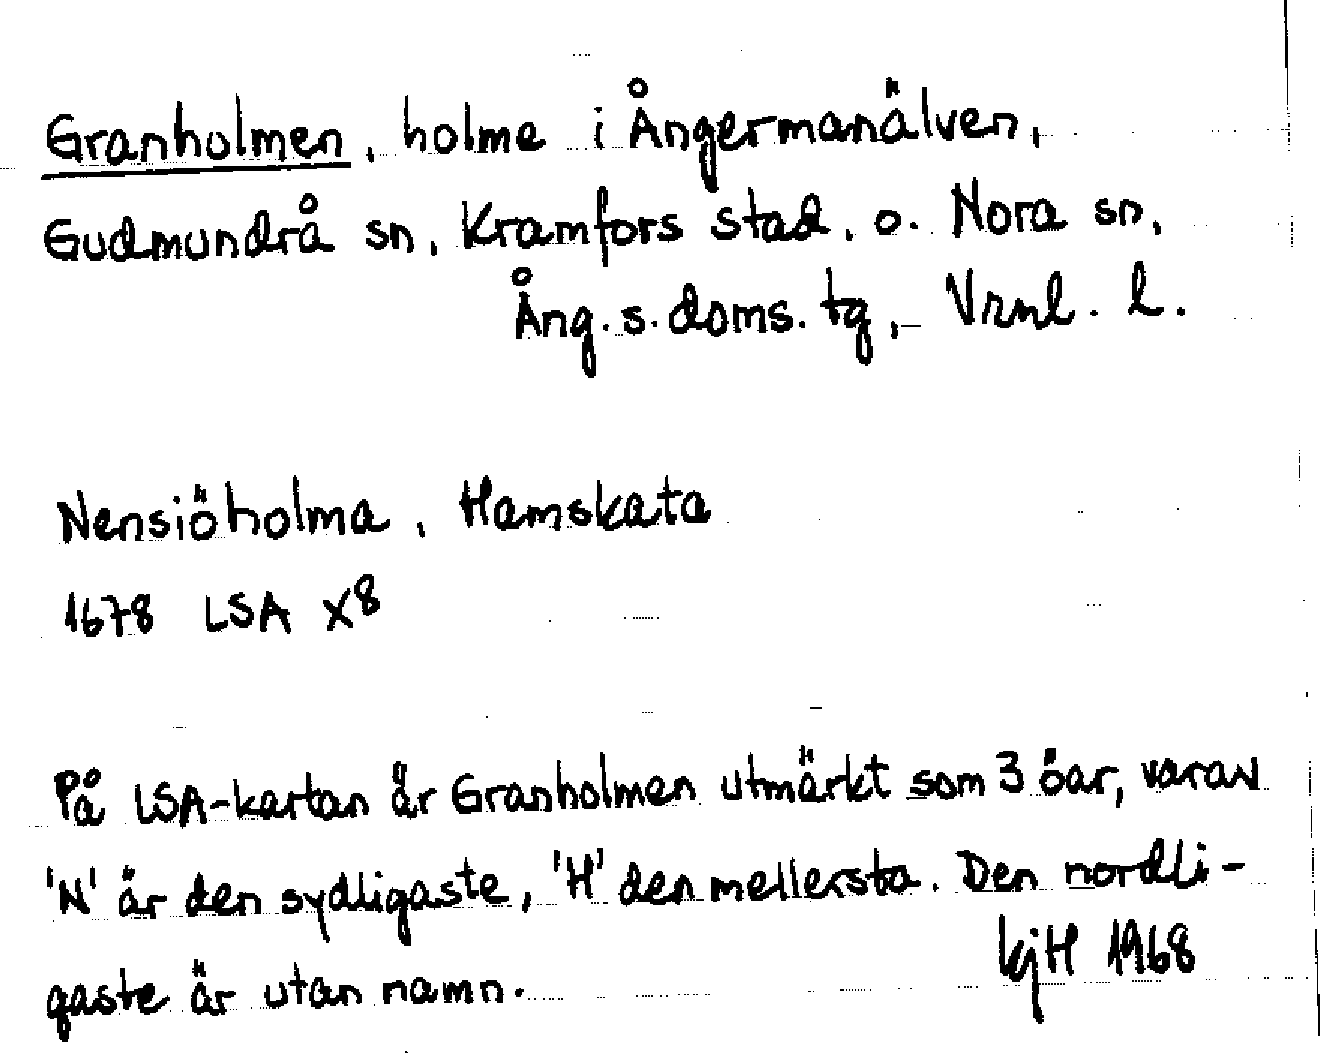 Granholmen, holme i Ångermanälven,
Gudmundrå sn, Kramfors stad, o. Nora sn,
Ång. s. doms. tg, Vrnl. l.
Nensiöholma, Hamskata
1678 LSA X8
På LSA-kartan är Granholmen utmärkt som 3 öar, varav
'N' är den sydligaste, 'H' den mellersta. Den nordli-
gaste är utan namn.
kjH 1968